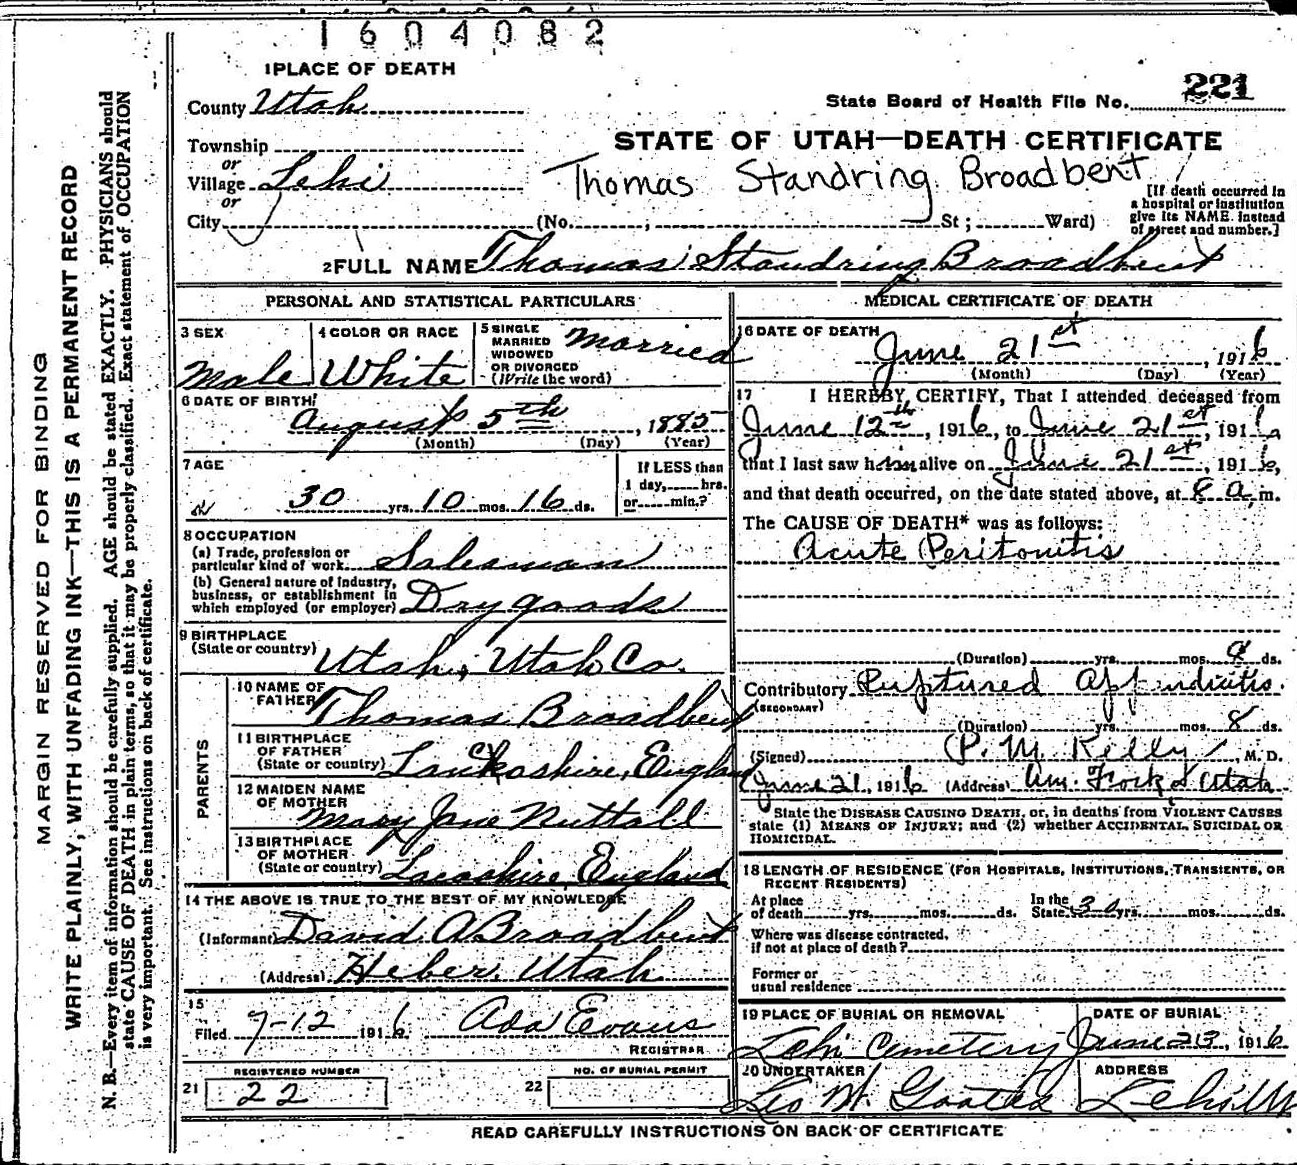 1604082
1 PLACE OF DEATH
221
County Utah
State Board of Health File No.
Township
STATE OF UTAH—DEATH CERTIFICATE
or
Village Lehi
Thomas Standring Broadbent
or
City (No. ; St ; Ward)
[If death occurred in
a hospital or institution
give its NAME. instead
of street and number.]
2 FULL NAME Thomas Standring Broadbent
PERSONAL AND STATISTICAL PARTICULARS
3 SEX
Male
4 COLOR OR RACE
White
5 SINGLE
MARRIED
WIDOWED
OR DIVORCED
(Write the word)
Married
6 DATE OF BIRTH
August 5th, 1885
(Month) (Day) (Year)
7 AGE
30 yrs. 10 mos. 16 ds.
If LESS than
1 day, hrs.
or min.?
8 OCCUPATION
(a) Trade, profession or
particular kind of work Salesman
(b) General nature of Industry,
business, or establishment in
which employed (or employer) Dry goods
9 BIRTHPLACE
(State or country) Utah, Utah Co.
PARENTS
10 NAME OF
FATHER Thomas Broadbent
11 BIRTHPLACE
OF FATHER
(State or country) Lanckashire, England
12 MAIDEN NAME
OF MOTHER Mary Jane Nuttall
13 BIRTHPLACE
OF MOTHER
(State or country) Lacashire, England
14 THE ABOVE IS TRUE TO THE BEST OF MY KNOWLEDGE
(Informant) David A Broadbent
(Address) Heber, Utah
15
Filed 7-12 1916 Ada Evans
REGISTRAR
REGISTERED NUMBER
21 22
NO. OF BURIAL PERMIT
22
MEDICAL CERTIFICATE OF DEATH
16 DATE OF DEATH
June 21st, 1916
(Month) (Day) (Year)
17 I HEREBY CERTIFY, That I attended deceased from
June 12th, 1916, to June 21st, 1916,
that I last saw him alive on June 21st, 1916,
and that death occurred, on the date stated above, at 8 a m.
The CAUSE OF DEATH* was as follows:
Acute Peritonitis
(Duration) yrs. mos. 9 ds.
Contributory Ruptured Appendicitis.
(SECONDARY)
(Duration) yrs. mos. 8 ds.
(Signed) P. M. Kelly, M. D.
June 21, 1916 (Address) Am. Fork Utah
State the DISEASE CAUSING DEATH, or, in deaths from VIOLENT CAUSES
state (1) MEANS OF INJURY; and (2) whether ACCIDENTAL, SUICIDAL OR
HOMICIDAL.
18 LENGTH OF RESIDENCE (FOR HOSPITALS, INSTITUTIONS, TRANSIENTS, OR
RECENT RESIDENTS)
At place
of death yrs. mos. ds.
In the
State 30 yrs. mos. ds.
Where was disease contracted,
if not at place of death?
Former or
usual residence
19 PLACE OF BURIAL OR REMOVAL
Lehi Cemetery
DATE OF BURIAL
June 23, 1916
20 UNDERTAKER
ADDRESS
Lehi
READ CAREFULLY INSTRUCTIONS ON BACK OF CERTIFICATE
MARGIN RESERVED FOR BINDING
WRITE PLAINLY, WITH UNFADING INK—THIS IS A PERMANENT RECORD
N. B.—Every item of information should be carefully supplied. AGE should be stated EXACTLY. PHYSICIANS should
state CAUSE OF DEATH in plain terms, so that it may be properly classified. Exact statement of OCCUPATION
is very important. See instructions on back of certificate.